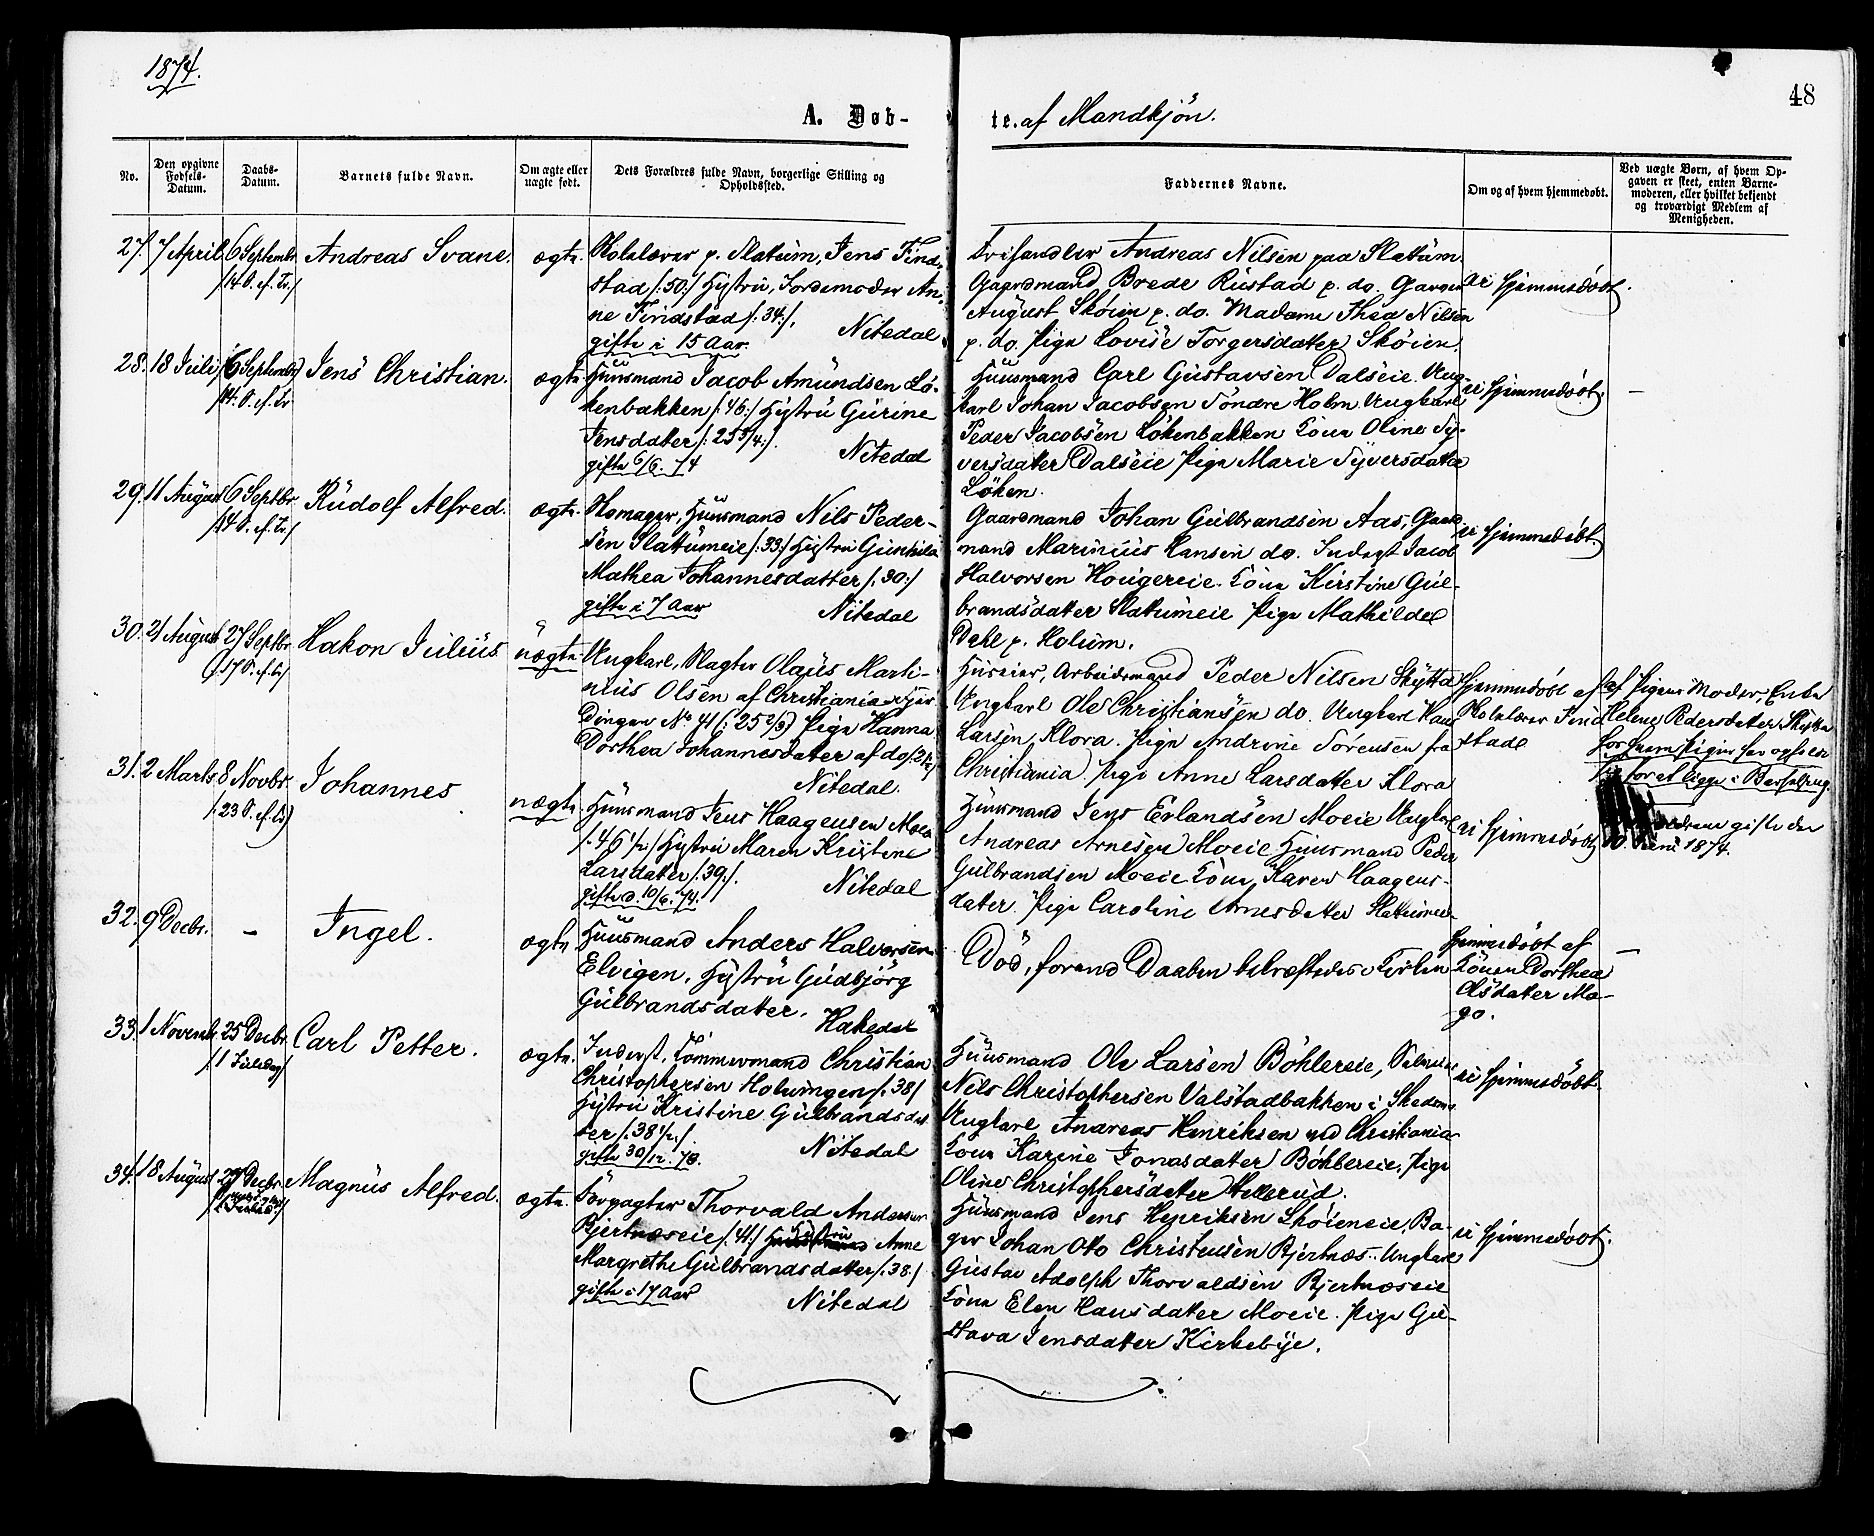 1874.
48
A. Døb-
te. af Mandkjön.
No.
Den opgivne
Fødsels-
Datum.
Daabs-
Datum.
Barnets fulde Navn.
Om ægte eller
uægte født.
Dets Forældres fulde Navn, borgerlige Stilling og
Opholdssted.
Faddernes Navne.
Om og af hvem hjemmedøbt.
Ved uægte Børn, af hvem Op-
gaven er skeet, enten Barne-
moderen, eller hvilket bekjendt
og troværdigt Medlem af
Menigheden.
27. 7 April 6 Septembr
/14 S. ef. Tr./
Andreas Svane.
ægte.
Skolelærer p. Slatum, Jens Find-
stad /:50:/ Hystru, Jordemoder An-
ne Findstad /:34:/,
gifte i 15 Aar. Nitedal
Andreas Nilsen paa Slatum.
Gaardmand Brede Rustad p. do.
August Skøien p. do. Madame Thea Nilsen
p. do. Pige Lovise Torgersdatter Skøien.
ei hjemmedøbt.
28. 18 Juli 6 Septembr
/14. S. ef. Tr
Jens Christian.
ægte
Huusmand Jacob Amundsen Lø-
kenbakken /:46:/ Hystru Gurine
Jensdatter /:25 3/4:/.
gifte 6/6. 74 Nitedal
Huusmand Carl Gustavsen Dalseie. Ung-
karl Johan Jacobsen Søndre Holm. Ungkarl
Peder Jacobsen Løkenbakken Kone Oline Sy-
versdatter Dalseie Pige Marie Syversdatter
Løken.
ei hjemmedøbt. –
29. 11 August 6 Septbr
/14 S. ef. Tr/
Rudolf Alfred.
ægte.
Skomager, Huusmand Nils Peder-
sen Slatumeie /:33:/ Hystru Gunhild
Mathea Johannesdatter /:30:/
gifte i 7 Aar Nitedal
Gaardmand Johan Gulbrandsen Aas, Gaard-
mand Marinius Hansen do. Inderst Jacob
Halvorsen Hougereie. Kone Kirstine Gul-
brandsdatter Slatumeie Pige Mathilde
Dahl p. Holum.
ei hjemmedøbt.
30. 21 August 27 Septbr
/17 S. ef. Tr/
Hakon Julius
uægte.
Ungkarl, Slagter Olaus Marti-
nius Olsen af Christiania
No 41 /:25 2/3/ Pige Hanna
Dorthea Johannesdatter af do
Nitedal.
Huseier, Arbeidsmand Peder Nilsen Skytta
Ungkarl Ole Christiansen do. Ungkarl Hans
Larsen, Klora. Pige Andrine Sørensen fra
Christiania. Pige Anne Larsdatter Klora
Hjemmedøbt af
Skolelærer Find-
stad
af Pigens Moder, Enke
Helene Pedersdatter Skytta
for at ligge i Barselseng.
31. 2 Marts 8 Novbr.
/:23 S. ef. Tr/
Johannes
uægte.
Huusmand Jens Haagensen Moeie
/:46 1/2:/ Hystru Maren Kristine
Larsdatter /:39:/.
gifte d. 10/6. 74. Nitedal
Huusmand Jens Erlandsen Moeie Ungkarl
Andreas Arnesen Moeie Huusmand Peder
Gulbrandsen Moeie Kone Karen Haagens-
datter. Pige Caroline Arnesdatter Slatumeie
ei hjemmedøbt
gifte den
10. Juni 1874.
32. 9 Decbr. –
Ingel.
ægte
Huusmand Anders Halvorsen
Elvigen, Hystru Gudbjørg
Gulbrandsdatter.
Hakedal
Död, forend Daaben bekræftedes i Kirken
Hjemmedöbt af
Konen Dorthea
Olsdatter Mo-
go.
–
33. 1 Novembr 25 Decbr.
/1 Juledag/
Carl Petter.
ægte.
Inderst, Tømmermand Christian
Christophersen Holmingen /:38/
Hystru Kristine Gulbrandsdat-
ter /:38 1/2:/.
gifte 30/12. 70. Nitedal
Huusmand Ole Larsen Böhlereie,
Nils Christophersen Valstadbakken i Skedsmo
Ungkarl Andreas Henriksen ved Christiania
Kone Karine Jonasdatter Böhlereie, Pige
Oline Christophersdatter Hellerud.
ei hjemmedöbt.
34. 18 August 27 Decbr.
Magnus Alfred.
ægte.
Forpagter Thorvald Andersen
Bjertnæseie /:41:/ Hystru Anne
Margrethe Gulbrandsdatter /:38:/
gifte i 17 Aar
Nitedal
Huusmand Jens Henriksen Skøieneie, Ba-
ger Johan Otto Christensen Bjertnæs. Ungkarl
Gustav Adolph Thorvaldsen Bjertnæseie
Kone Elen Hansdatter Moeie. Pige Gu-
stava Jensdatter Kirkebye.
ei hjemmedøbt.